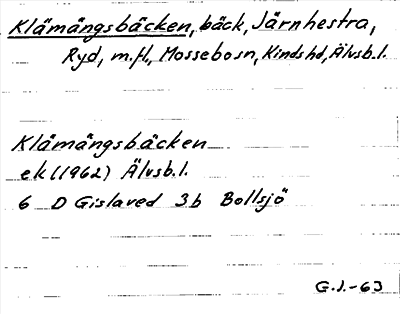 Klämängsbäcken, bäck, Järnhestra,
Ryd, m.fl., Mossebo sn, Kinds hd, Älvsb.l.
Klämängsbäcken
ek (1962) Älvsb.l.
6 D Gislaved 3b Bollsjö
G.J.-63